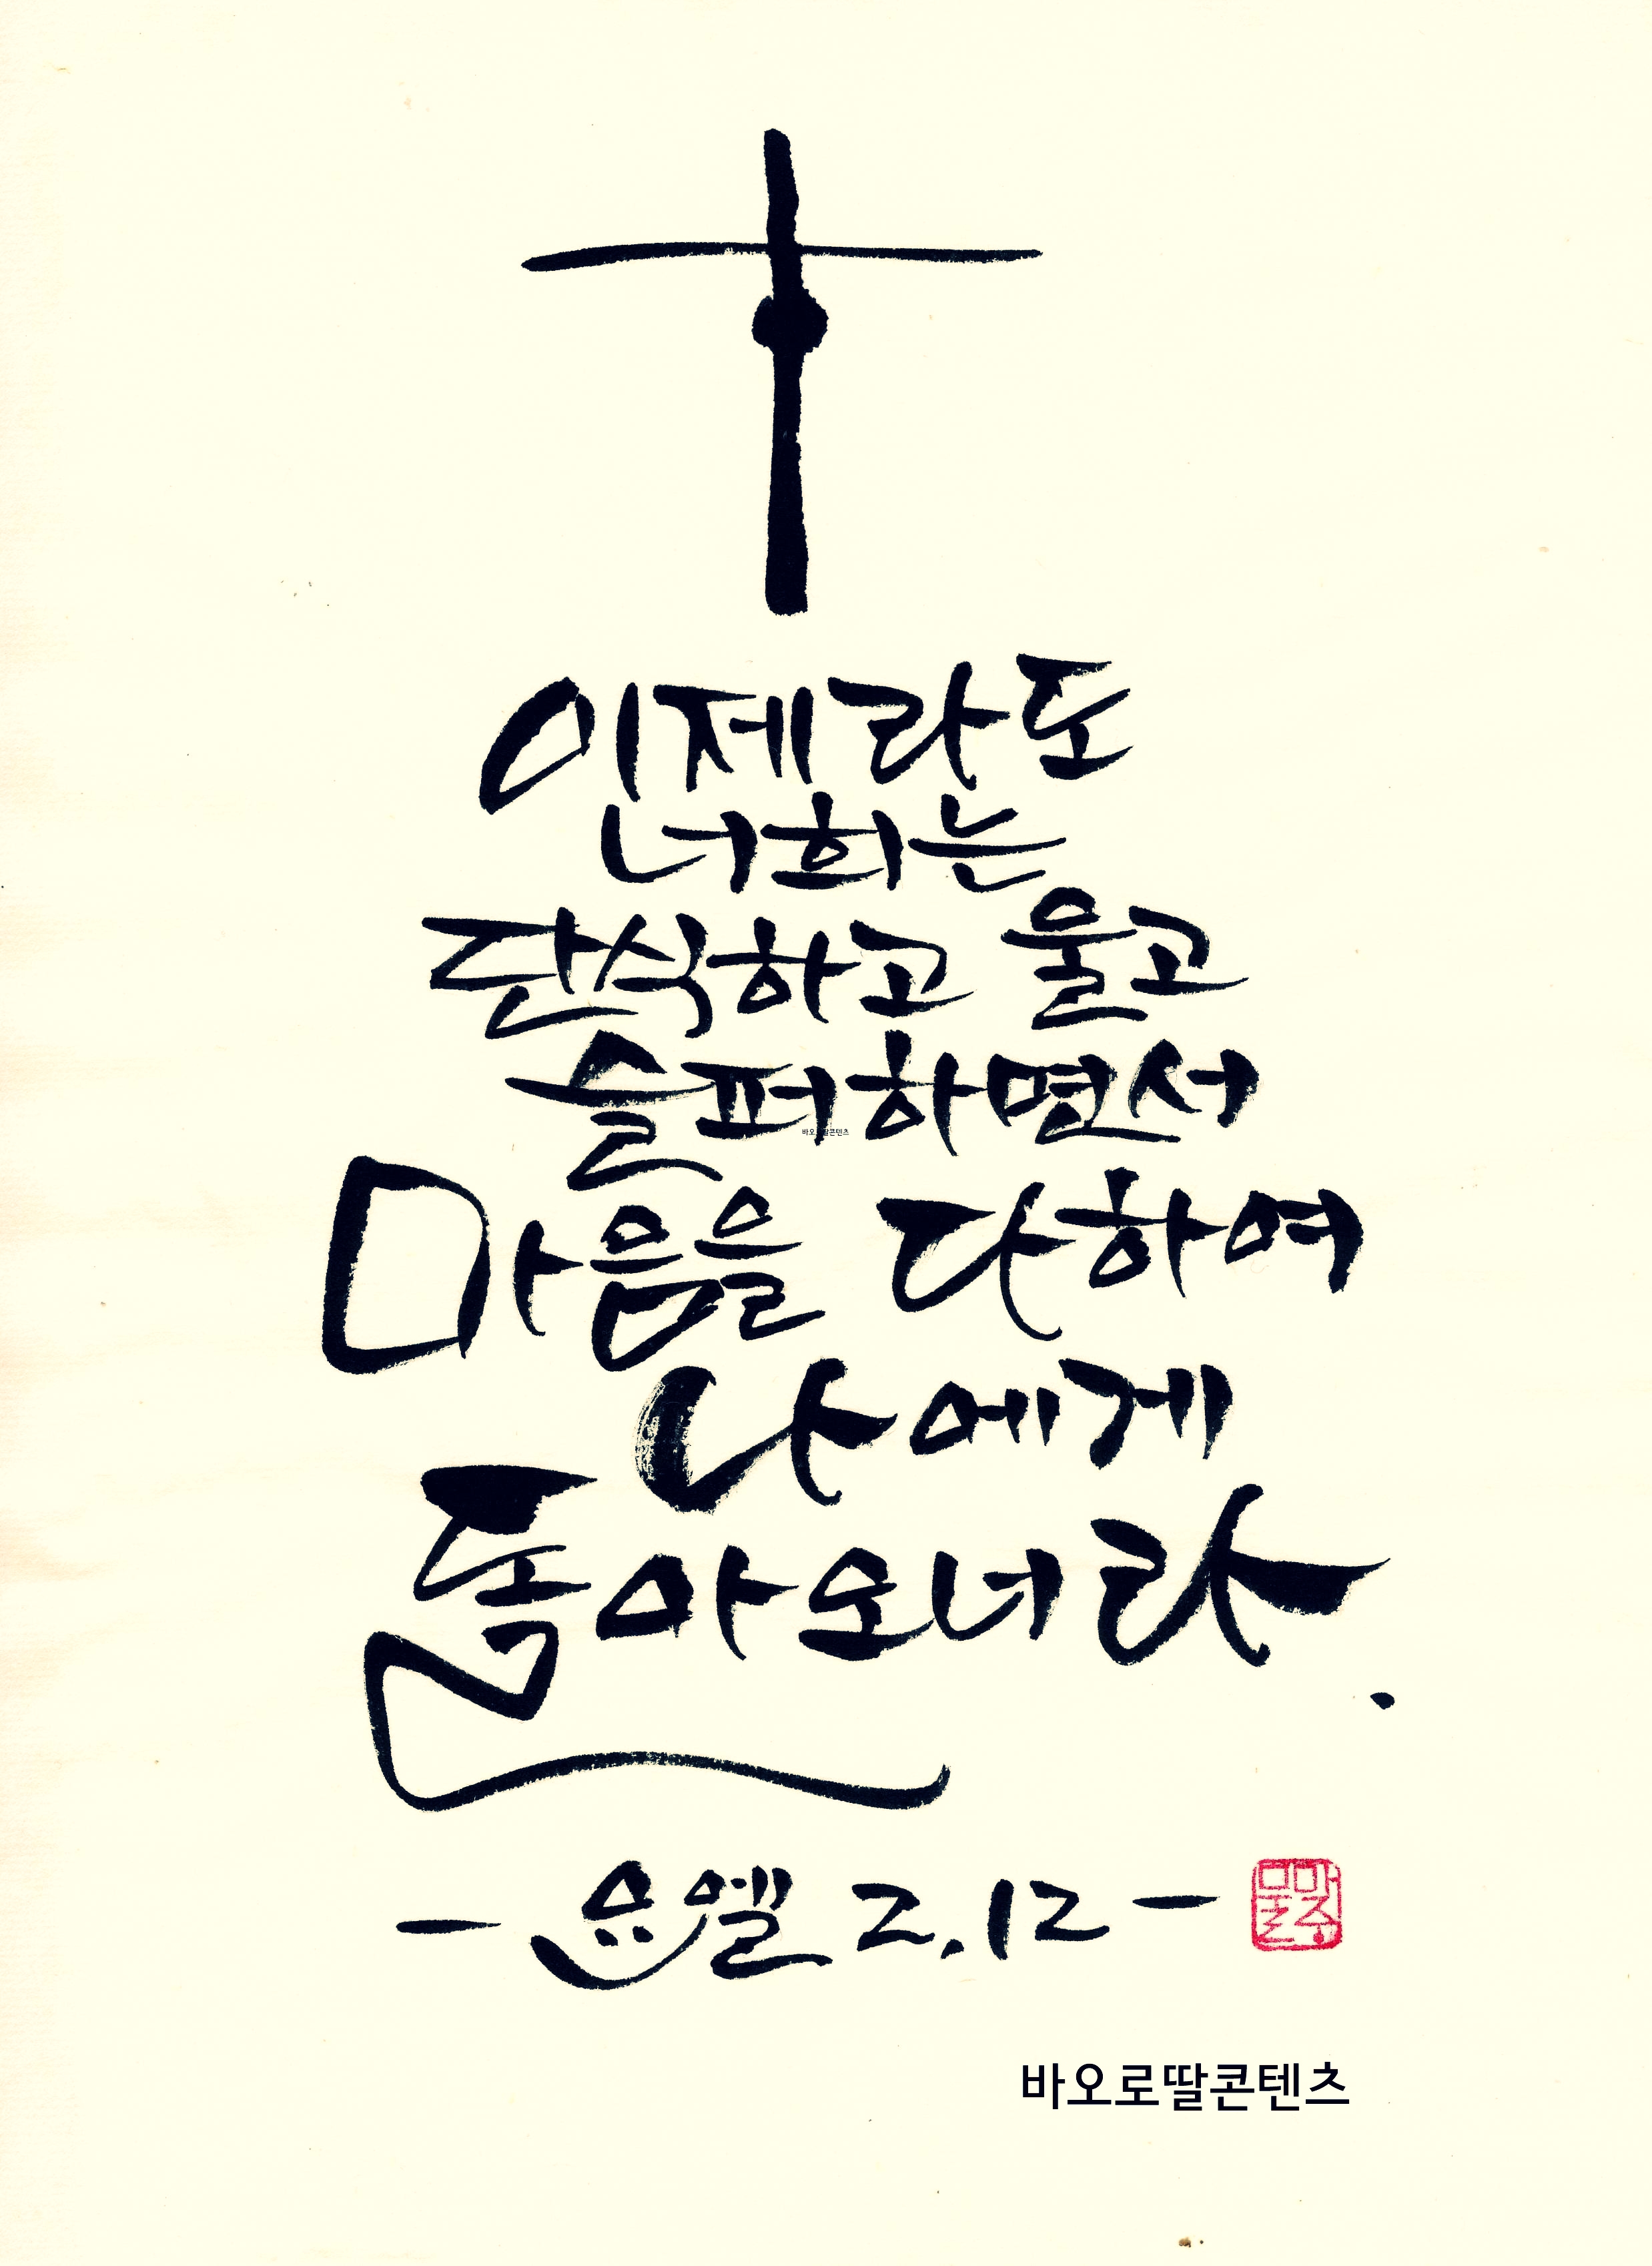 이제라도
너희는
단식하고 울고
슬퍼하면서
바오로딸콘텐츠
마음을 다하여
나에게
돌아오너라.
- 요엘 2.12 -
바오로딸콘텐츠